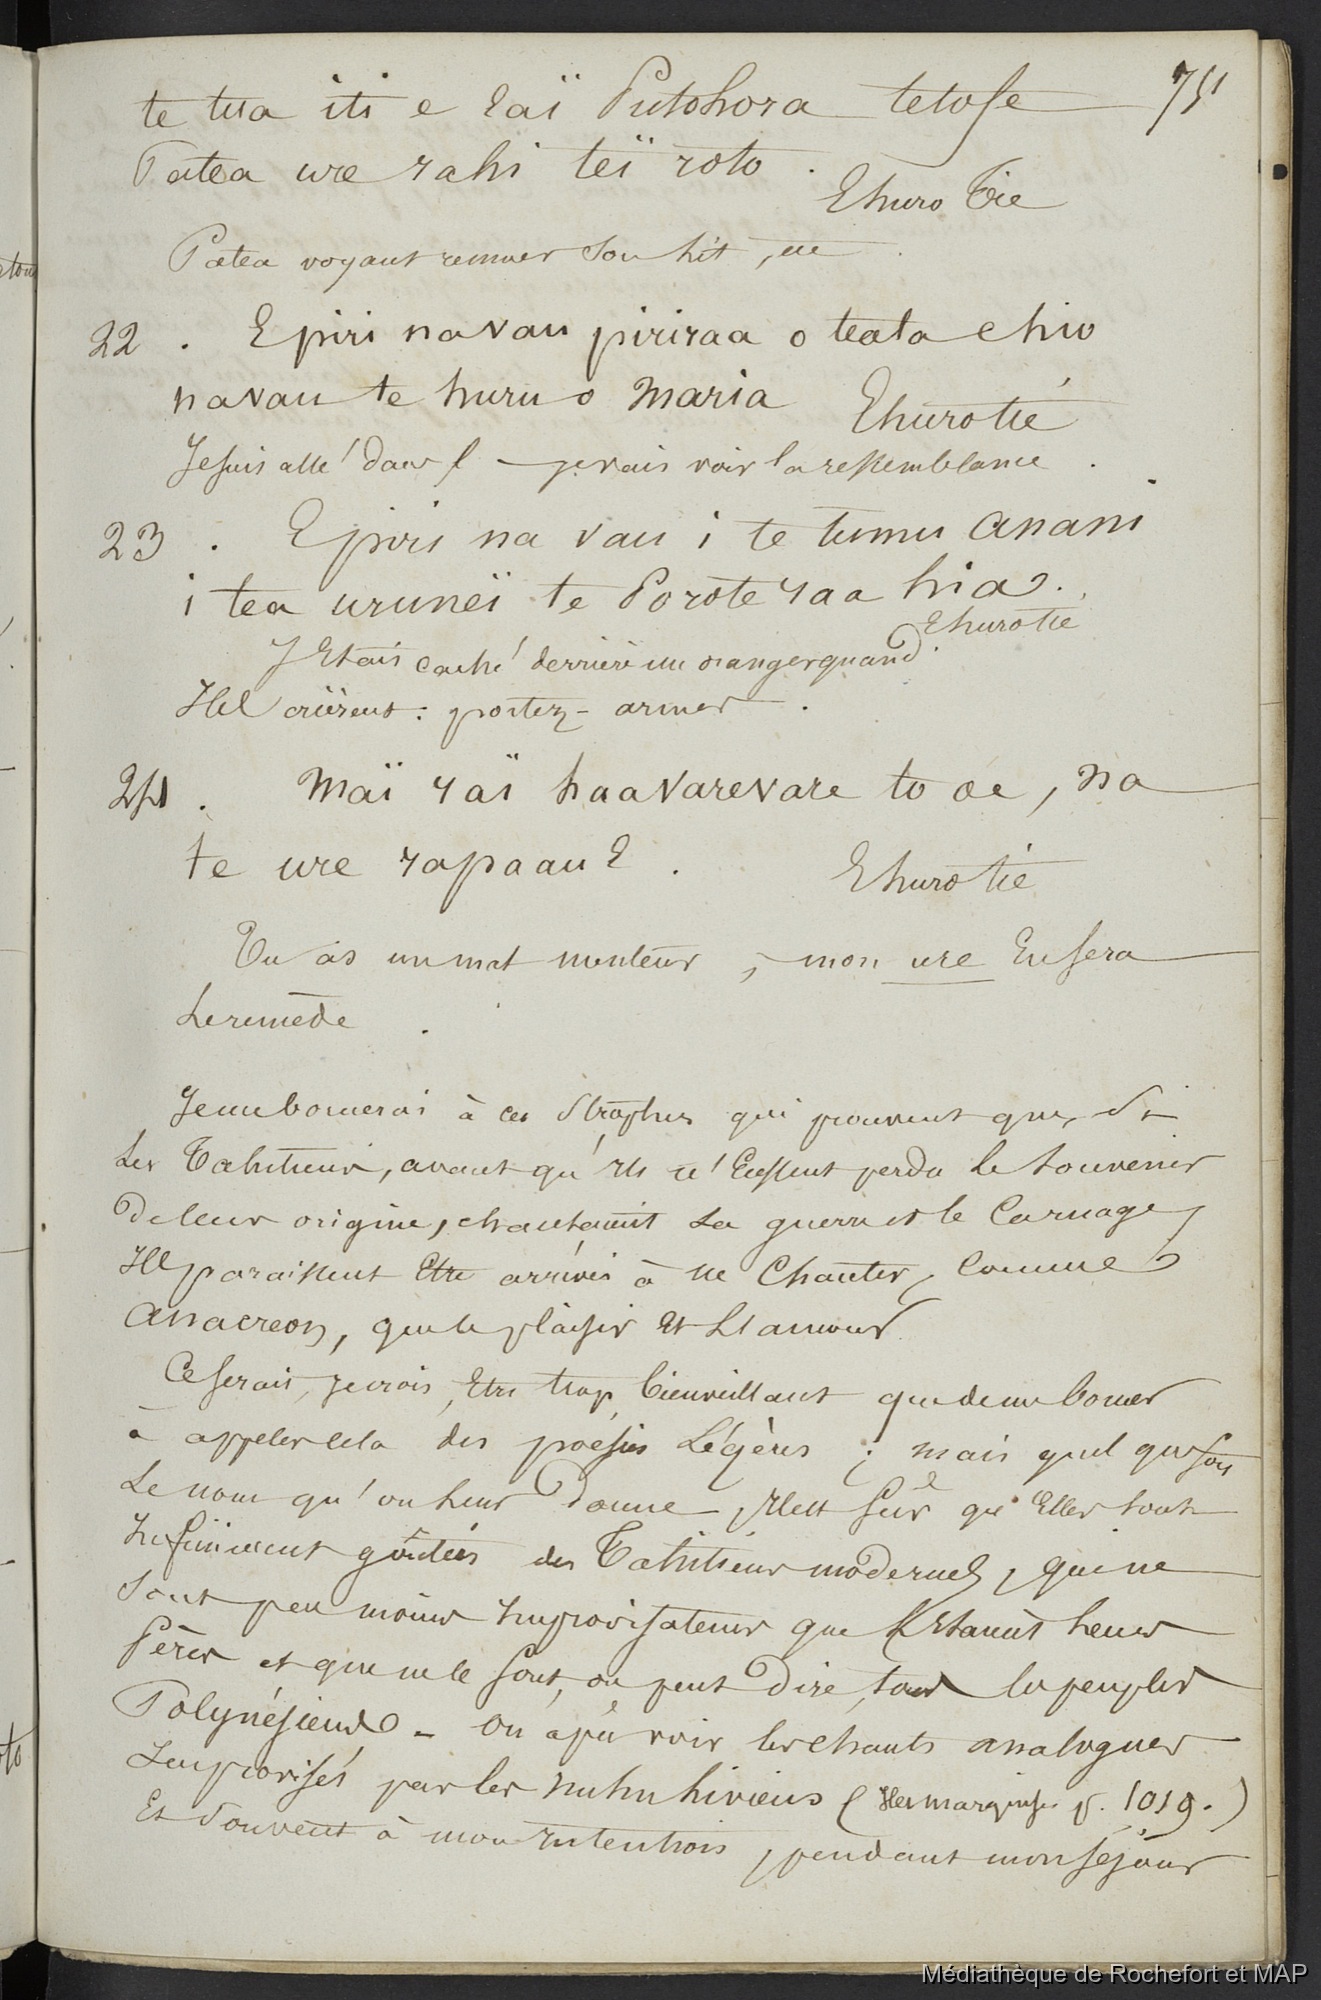 751
te tua iti e raï Putohora tetose
Patea ure rahi teï roto.
Ehuro tie
Patea voyant remuer son lit, etc.
22. E piri navau piriraa o teata e hio
navau te huru o Maria Ehurotié
Je suis allé dans l — je vais voir la ressemblance.
23. E piri na vau i te tumu anani
i tea uruneï te Poroteraa hia.
Ehurotie
J'Etais caché derrière un oranger quand
Ils crièrent : portez-armes.
24. Maï raï haavarevare to oe, na
te ure rapaau E.
Ehurotié
Tu as un mat menteur, mon ure En sera
Le remède.
Je me bornerai à ces strophes qui prouvent que, si
Les Tahitiens, avant qu'Ils n'Eussent perdu le souvenir
De leur origine, chantaient La guerre et le Carnage,
Ils paraissent Etre arrivés à ne Chanter, Comme
Anacreon, que le plaisir Et L'amour.
Ce serait, je crois, Etre trop bienveillant que de me borner
à appeler cela des poésies Légères ; mais quel que soit
Le nom qu'on Leur Donne, Il est sûr qu'Elles sont
Infiniment goûtées des Tahitiens modernes, qui ne
sont peu moins Improvisateurs que l'Etaient Leurs
Pères et que ne le sont, on peut Dire, tous les peuples
Polynésiens. — On a pu voir les chants analogues
Improvisés par les nuhu hiviens (Iles marquises p. 1019.)
Et souvent à mon Intention, pendant mon séjour
Médiathèque de Rochefort et MAP